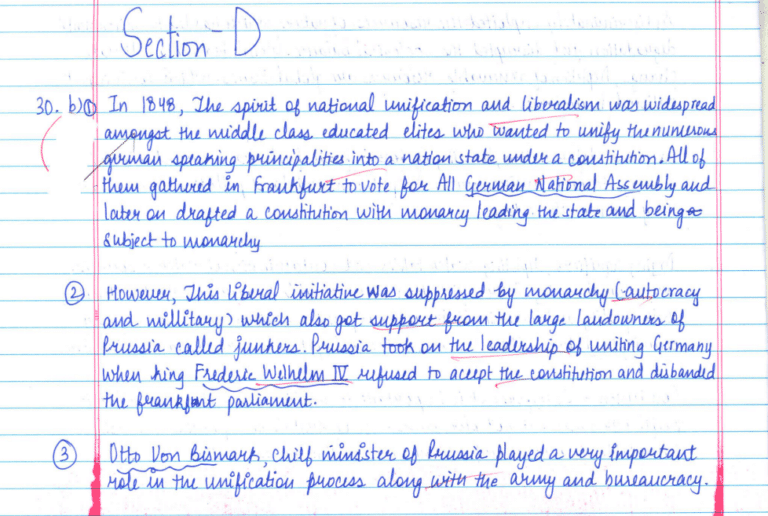 Section-D
30. b)① In 1848, The spirit of national unification and liberalism was widespread
amongst the middle class educated elites who wanted to unify the numerous
german speaking principalities into a nation state under a constitution. All of
them gathered in Frankfurt to vote for All German National Assembly and
later on drafted a constitution with monarcy leading the state and being
subject to monarchy
② However, This liberal initiative was suppressed by monarchy (autocracy
and millitary) which also got support from the large landowners of
Prussia called junkers. Prussia took on the leadership of uniting Germany
when king Frederic Welhelm IV refused to accept the constitution and disbanded
the frankfurt parliament.
③ Otto Von Bismark, chief minister of Prussia played a very important
role in the unification process along with the army and bureaucracy.